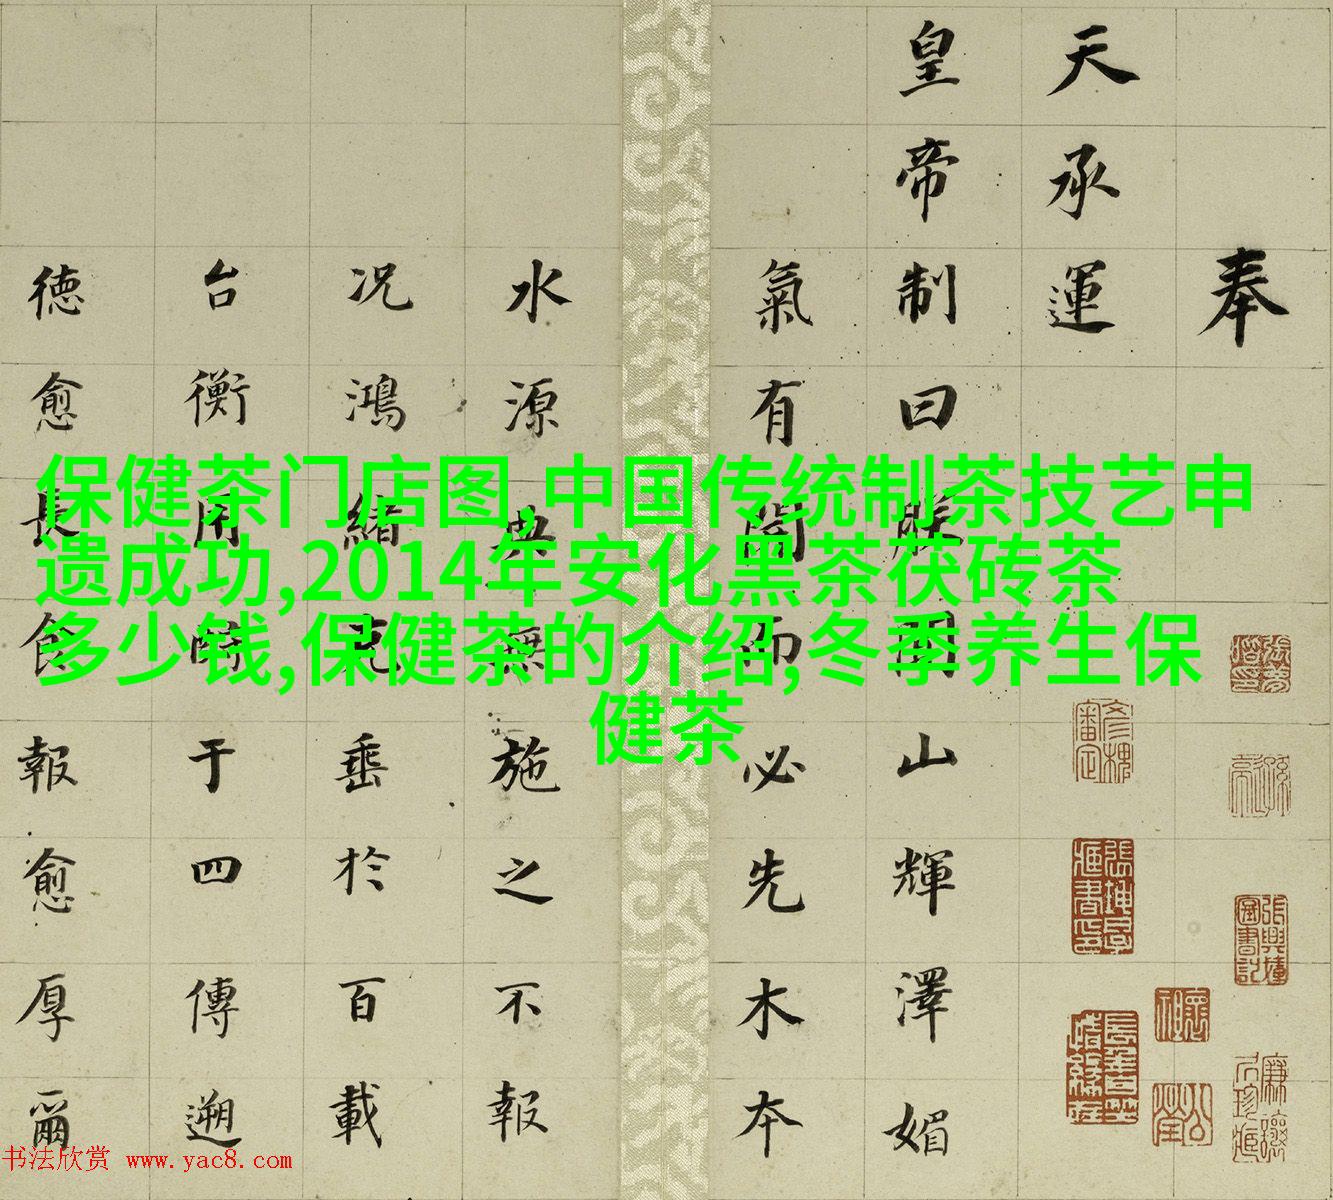 保健茶门店图,中国传统制茶技艺申
遗成功,2014年安化黑茶茯砖茶
多少钱,保健茶的介绍,冬季养生保
健茶
奉
天承運
皇帝制曰朕山輝澤媚
氣有開而必先木本
水源典無施之不報
况鴻緒克垂於百載
台衡用酬于四傳遡
德愈長食報愈厚爾
书法欣赏 www.yac8.com